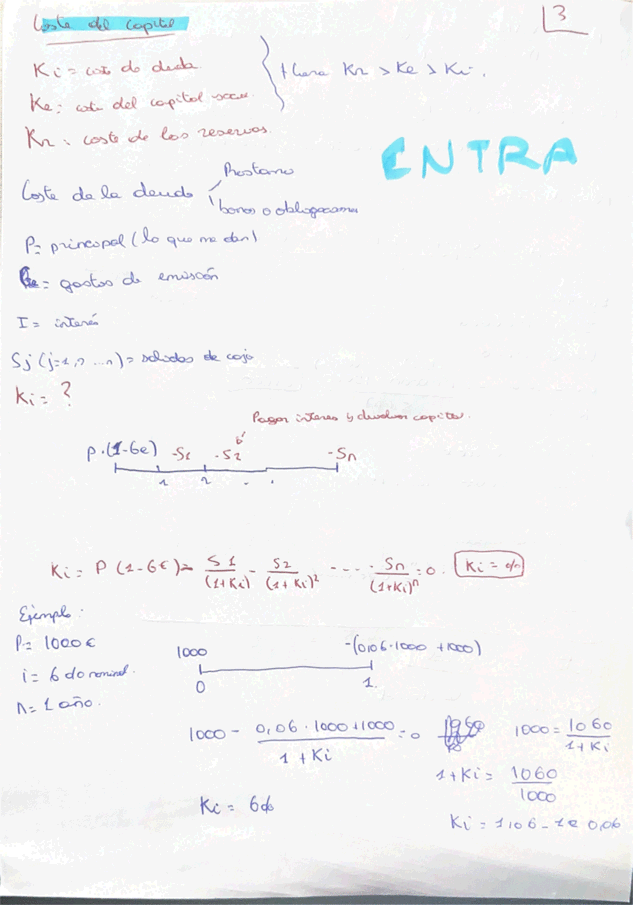 3
Coste del capital
Ki = coste de deuda
Ke = coste del capital social
Kr = coste de las reservas.
Kr > Ke > Ki.
ENTRA
Coste de la deuda
Prestamo
bonos o obligaciones
P = principal (lo que me dan)
Ge = gastos de emisión
I = interés
Sj (j=1, 2 ... n) = salidas de caja
Ki = ?
Pagar interes y devolver capital.
P·(1-Ge) -S1 -S2 -Sn
1 2 . .
Ki = P (1-Ge) - S1/(1+Ki) - S2/(1+Ki)² - - - - Sn/(1+Ki)ⁿ = 0. Ki = %
Ejemplo:
P = 1000 €
i = 6 % nominal.
n = 1 año.
1000 -(0,06·1000 +1000)
0 1.
1000 - (0,06 · 1000 + 1000)/(1 + Ki) = 0
1000 = 1060/(1+Ki)
1+Ki = 1060/1000
Ki = 6%
Ki = 1,06 - 1 = 0,06